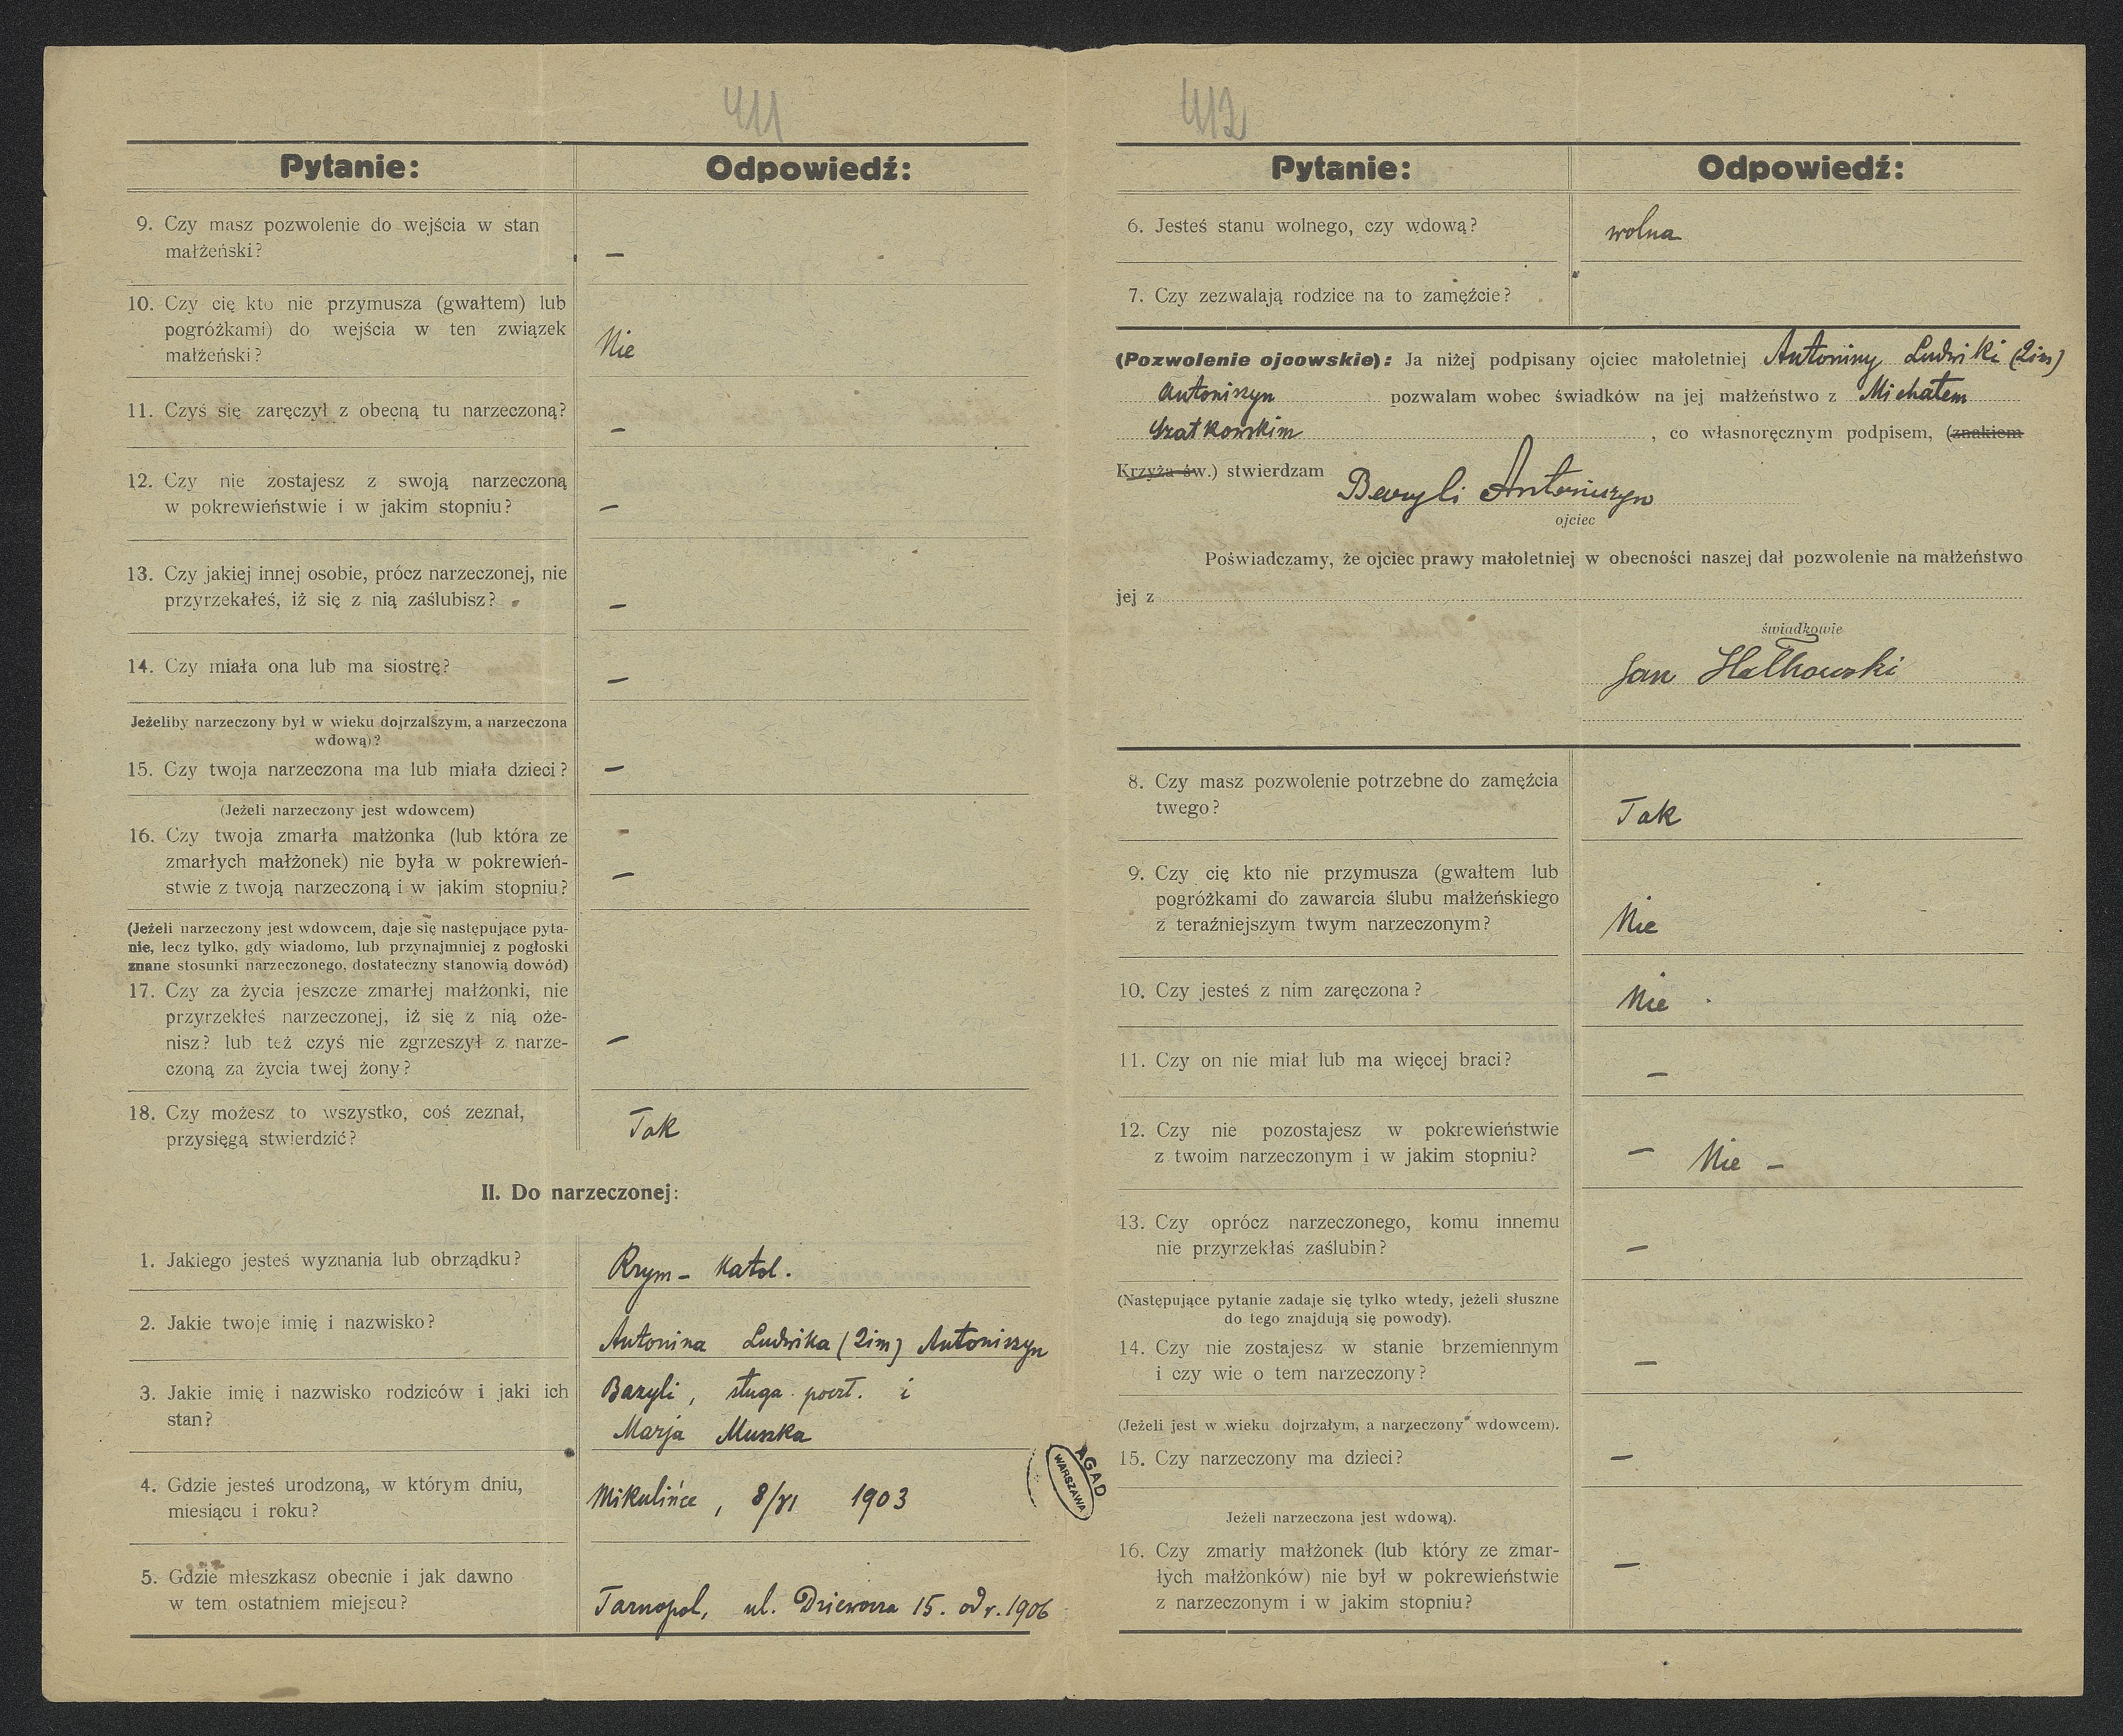 411
Pytanie: Odpowiedź:
9. Czy masz pozwolenie do wejścia w stan
małżeński?
—
10. Czy cię kto nie przymusza (gwałtem) lub
pogróżkami) do wejścia w ten związek
małżeński?
Nie
11. Czyś się zaręczył z obecną tu narzeczoną?
—
12. Czy nie zostajesz z swoją narzeczoną
w pokrewieństwie i w jakim stopniu?
—
13. Czy jakiej innej osobie, prócz narzeczonej, nie
przyrzekałeś, iż się z nią zaślubisz?
—
14. Czy miała ona lub ma siostrę?
—
Jeżeliby narzeczony był w wieku dojrzalszym, a narzeczona
wdową)?
15. Czy twoja narzeczona ma lub miała dzieci? —
(Jeżeli narzeczony jest wdowcem)
16. Czy twoja zmarła małżonka (lub która ze
zmarłych małżonek) nie była w pokrewień-
stwie z twoją narzeczoną i w jakim stopniu?
—
(Jeżeli narzeczony jest wdowcem, daje się następujące pyta-
nie, lecz tylko, gdy wiadomo, lub przynajmniej z pogłoski
znane stosunki narzeczonego, dostateczny stanowią dowód)
17. Czy za życia jeszcze zmarłej małżonki, nie
przyrzekłeś narzeczonej, iż się z nią oże-
nisz? lub też czyś nie zgrzeszył z narze-
czoną za życia twej żony?
—
18. Czy możesz to wszystko, coś zeznał,
przysięgą stwierdzić?
Tak
II. Do narzeczonej:
1. Jakiego jesteś wyznania lub obrządku?
Rzym - Katol.
2. Jakie twoje imię i nazwisko?
Antonina Ludwika (2im) Antoniszyn
3. Jakie imię i nazwisko rodziców i jaki ich
stan?
Bazyli, sługa poczt. i
Marja Muszka
4. Gdzie jesteś urodzoną, w którym dniu,
miesiącu i roku?
Mikulińce, 8/VI 1903
5. Gdzie mieszkasz obecnie i jak dawno
w tem ostatniem miejscu?
Tarnopol, ul. 15. od r. 1906
AGAD
WARSZAWA
412
Pytanie: Odpowiedź:
6. Jesteś stanu wolnego, czy wdową?
wolna
7. Czy zezwalają rodzice na to zamęźcie?
(Pozwolenie ojcowskie): Ja niżej podpisany ojciec małoletniej Antoniny Ludwiki (2im)
Antoniszyn pozwalam wobec świadków na jej małżeństwo z Michałem
Szatkowskim, co własnoręcznym podpisem, (znakiem
Krzyża św.) stwierdzam Bazyli Antoniszyn
ojciec
Poświadczamy, że ojciec prawy małoletniej w obecności naszej dał pozwolenie na małżeństwo
jej z
świadkowie
Jan
8. Czy masz pozwolenie potrzebne do zamęźcia
twego?
Tak
9. Czy cię kto nie przymusza (gwałtem lub
pogróżkami do zawarcia ślubu małżeńskiego
z teraźniejszym twym narzeczonym?
Nie
10. Czy jesteś z nim zaręczona?
Nie
11. Czy on nie miał lub ma więcej braci?
—
12. Czy nie pozostajesz w pokrewieństwie
z twoim narzeczonym i w jakim stopniu?
— Nie —
13. Czy oprócz narzeczonego, komu innemu
nie przyrzekłaś zaślubin?
—
(Następujące pytanie zadaje się tylko wtedy, jeżeli słuszne
do tego znajdują się powody).
14. Czy nie zostajesz w stanie brzemiennym
i czy wie o tem narzeczony?
—
(Jeżeli jest w wieku dojrzałym, a narzeczony wdowcem).
15. Czy narzeczony ma dzieci?
—
Jeżeli narzeczona jest wdową).
16. Czy zmarły małżonek (lub który ze zmar-
łych małżonków) nie był w pokrewieństwie
z narzeczonym i w jakim stopniu?
—